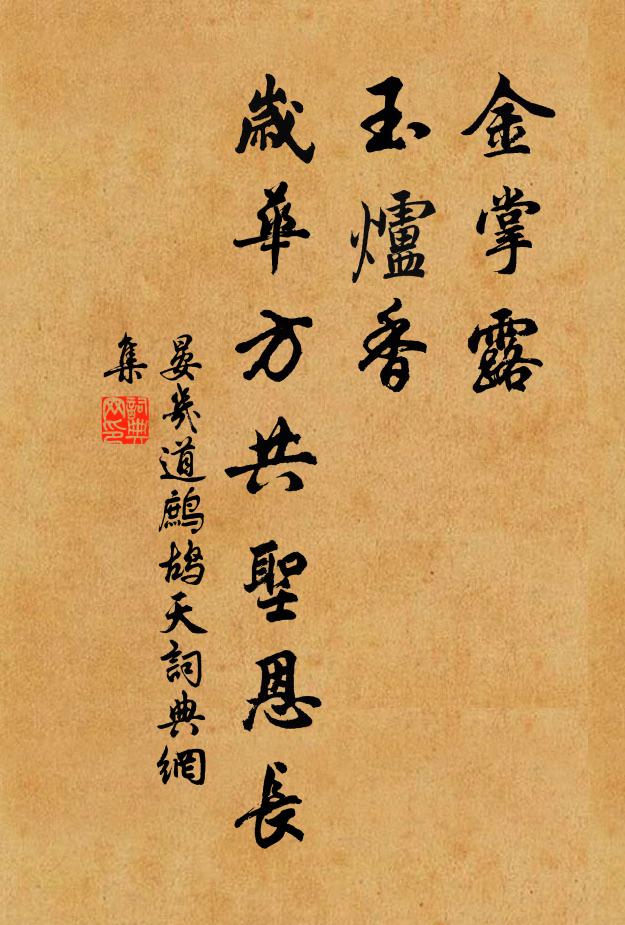 金掌露
玉爐香
歲華方共聖恩長
晏幾道鷓鴣天詞典網
集
詞典網印